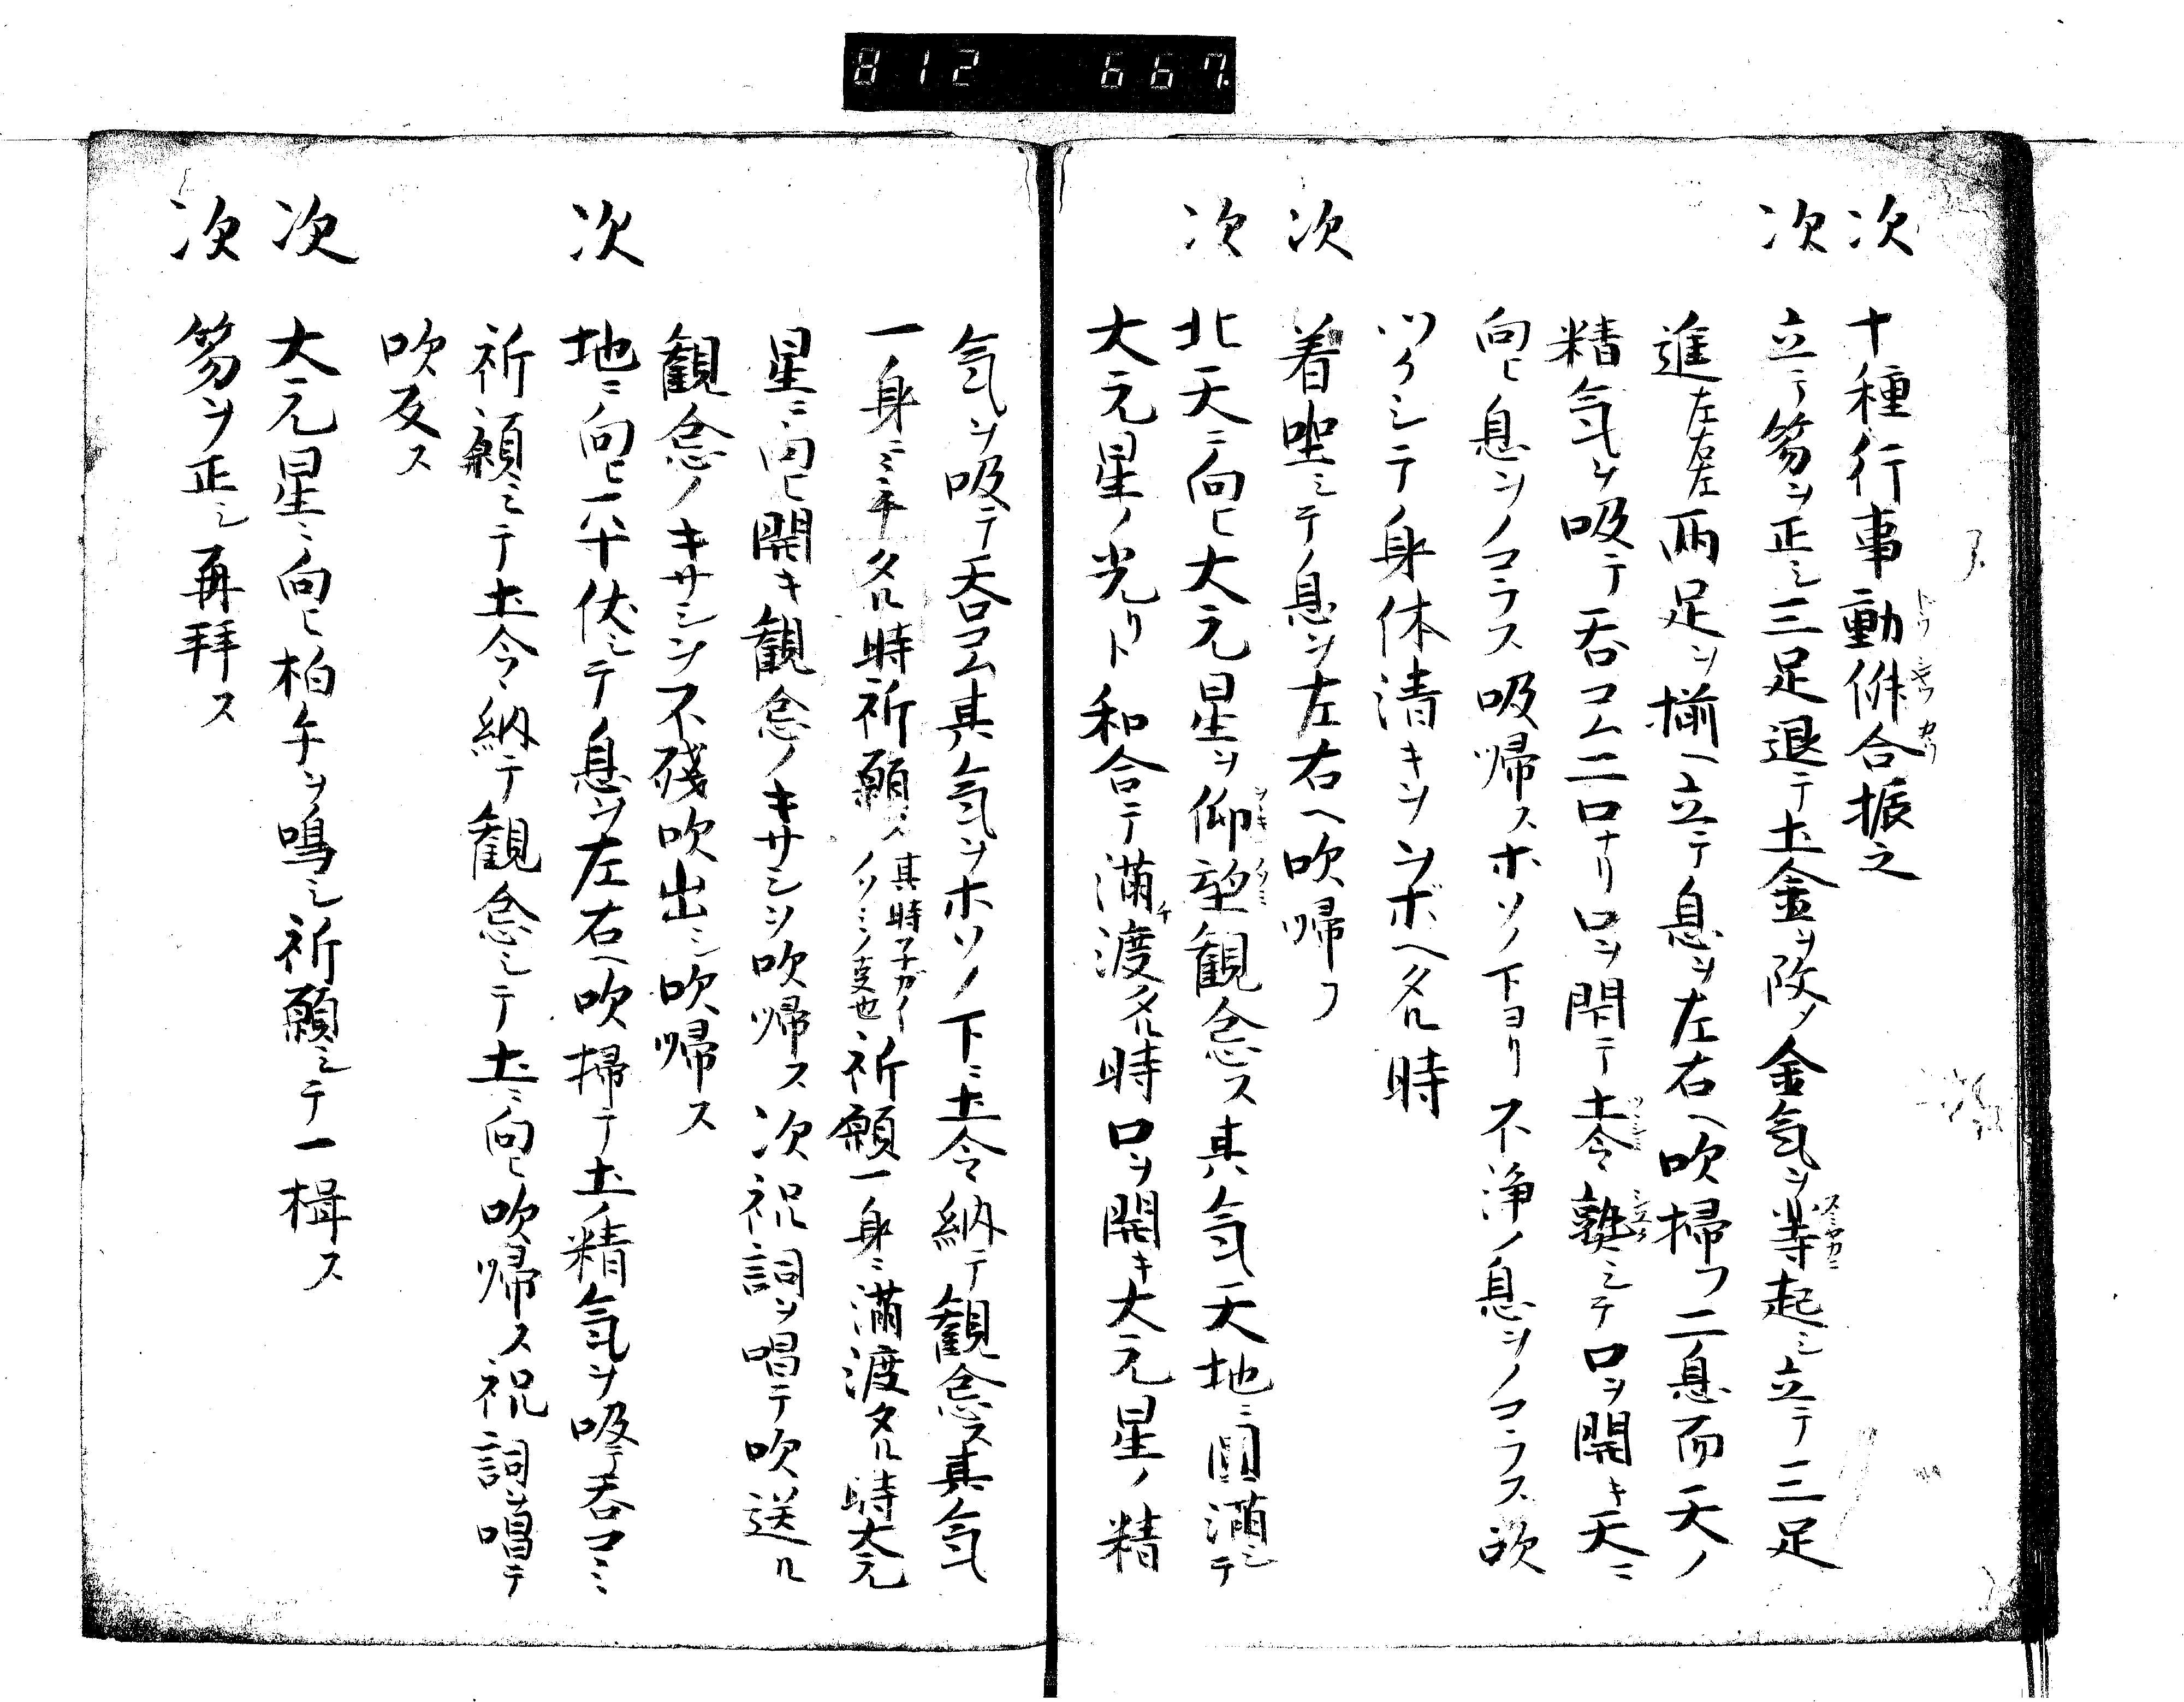 812 667
次 十種行事動併合振之
次 立テ笏ヲ正シ三足退テ土金ヲ踏メ金気ヲ等起シ立テ三足
進左右左両足ヲ揃ヘ立テ息ヲ左右ヘ吹掃フ二息而天ノ
精気ヲ吸テ呑コム二口ナリ口ヲ閇テ土令熟シテ口ヲ開キ天ニ
向ヒ息ヲノコラス吸帰スホソノ下ヨリ不浄ノ息ヲノコラス吹
ツクシテ身体清キヲヲボヘタル時
次 着坐シテ息ヲ左右ヘ吹帰フ
次 北天ニ向ヒ大元星ヲ仰望観念ス其気天地ニ円満シテ
大元星ノ光リト和合テ満渡タル時口ヲ開キ大元星ノ精
気ヲ吸テ呑コム其気ヲホソノ下ニ土令納テ観念ス其気
一身ニミチタル時祈願ス其時子ガイノソミノ事也祈願一身ニ満渡タル時大元
星ニ向ヒ開キ観念ノキサシヲ吹帰ス次祝詞ヲ唱テ吹送ル
観念ノキサシヲ不残吹出シ吹帰ス
次 地ニ向ヒ平伏シテ息ヲ左右ヘ吹掃テ土ノ精気ヲ吸テ呑コミ
祈願シテ土令納テ観念シテ土ニ向ヒ吹帰ス祝詞ヲ唱テ
吹反ス
次 大元星ニ向ヒ柏手ヲ鳴シ祈願シテ一楫ス
次 笏ヲ正シ再拜ス